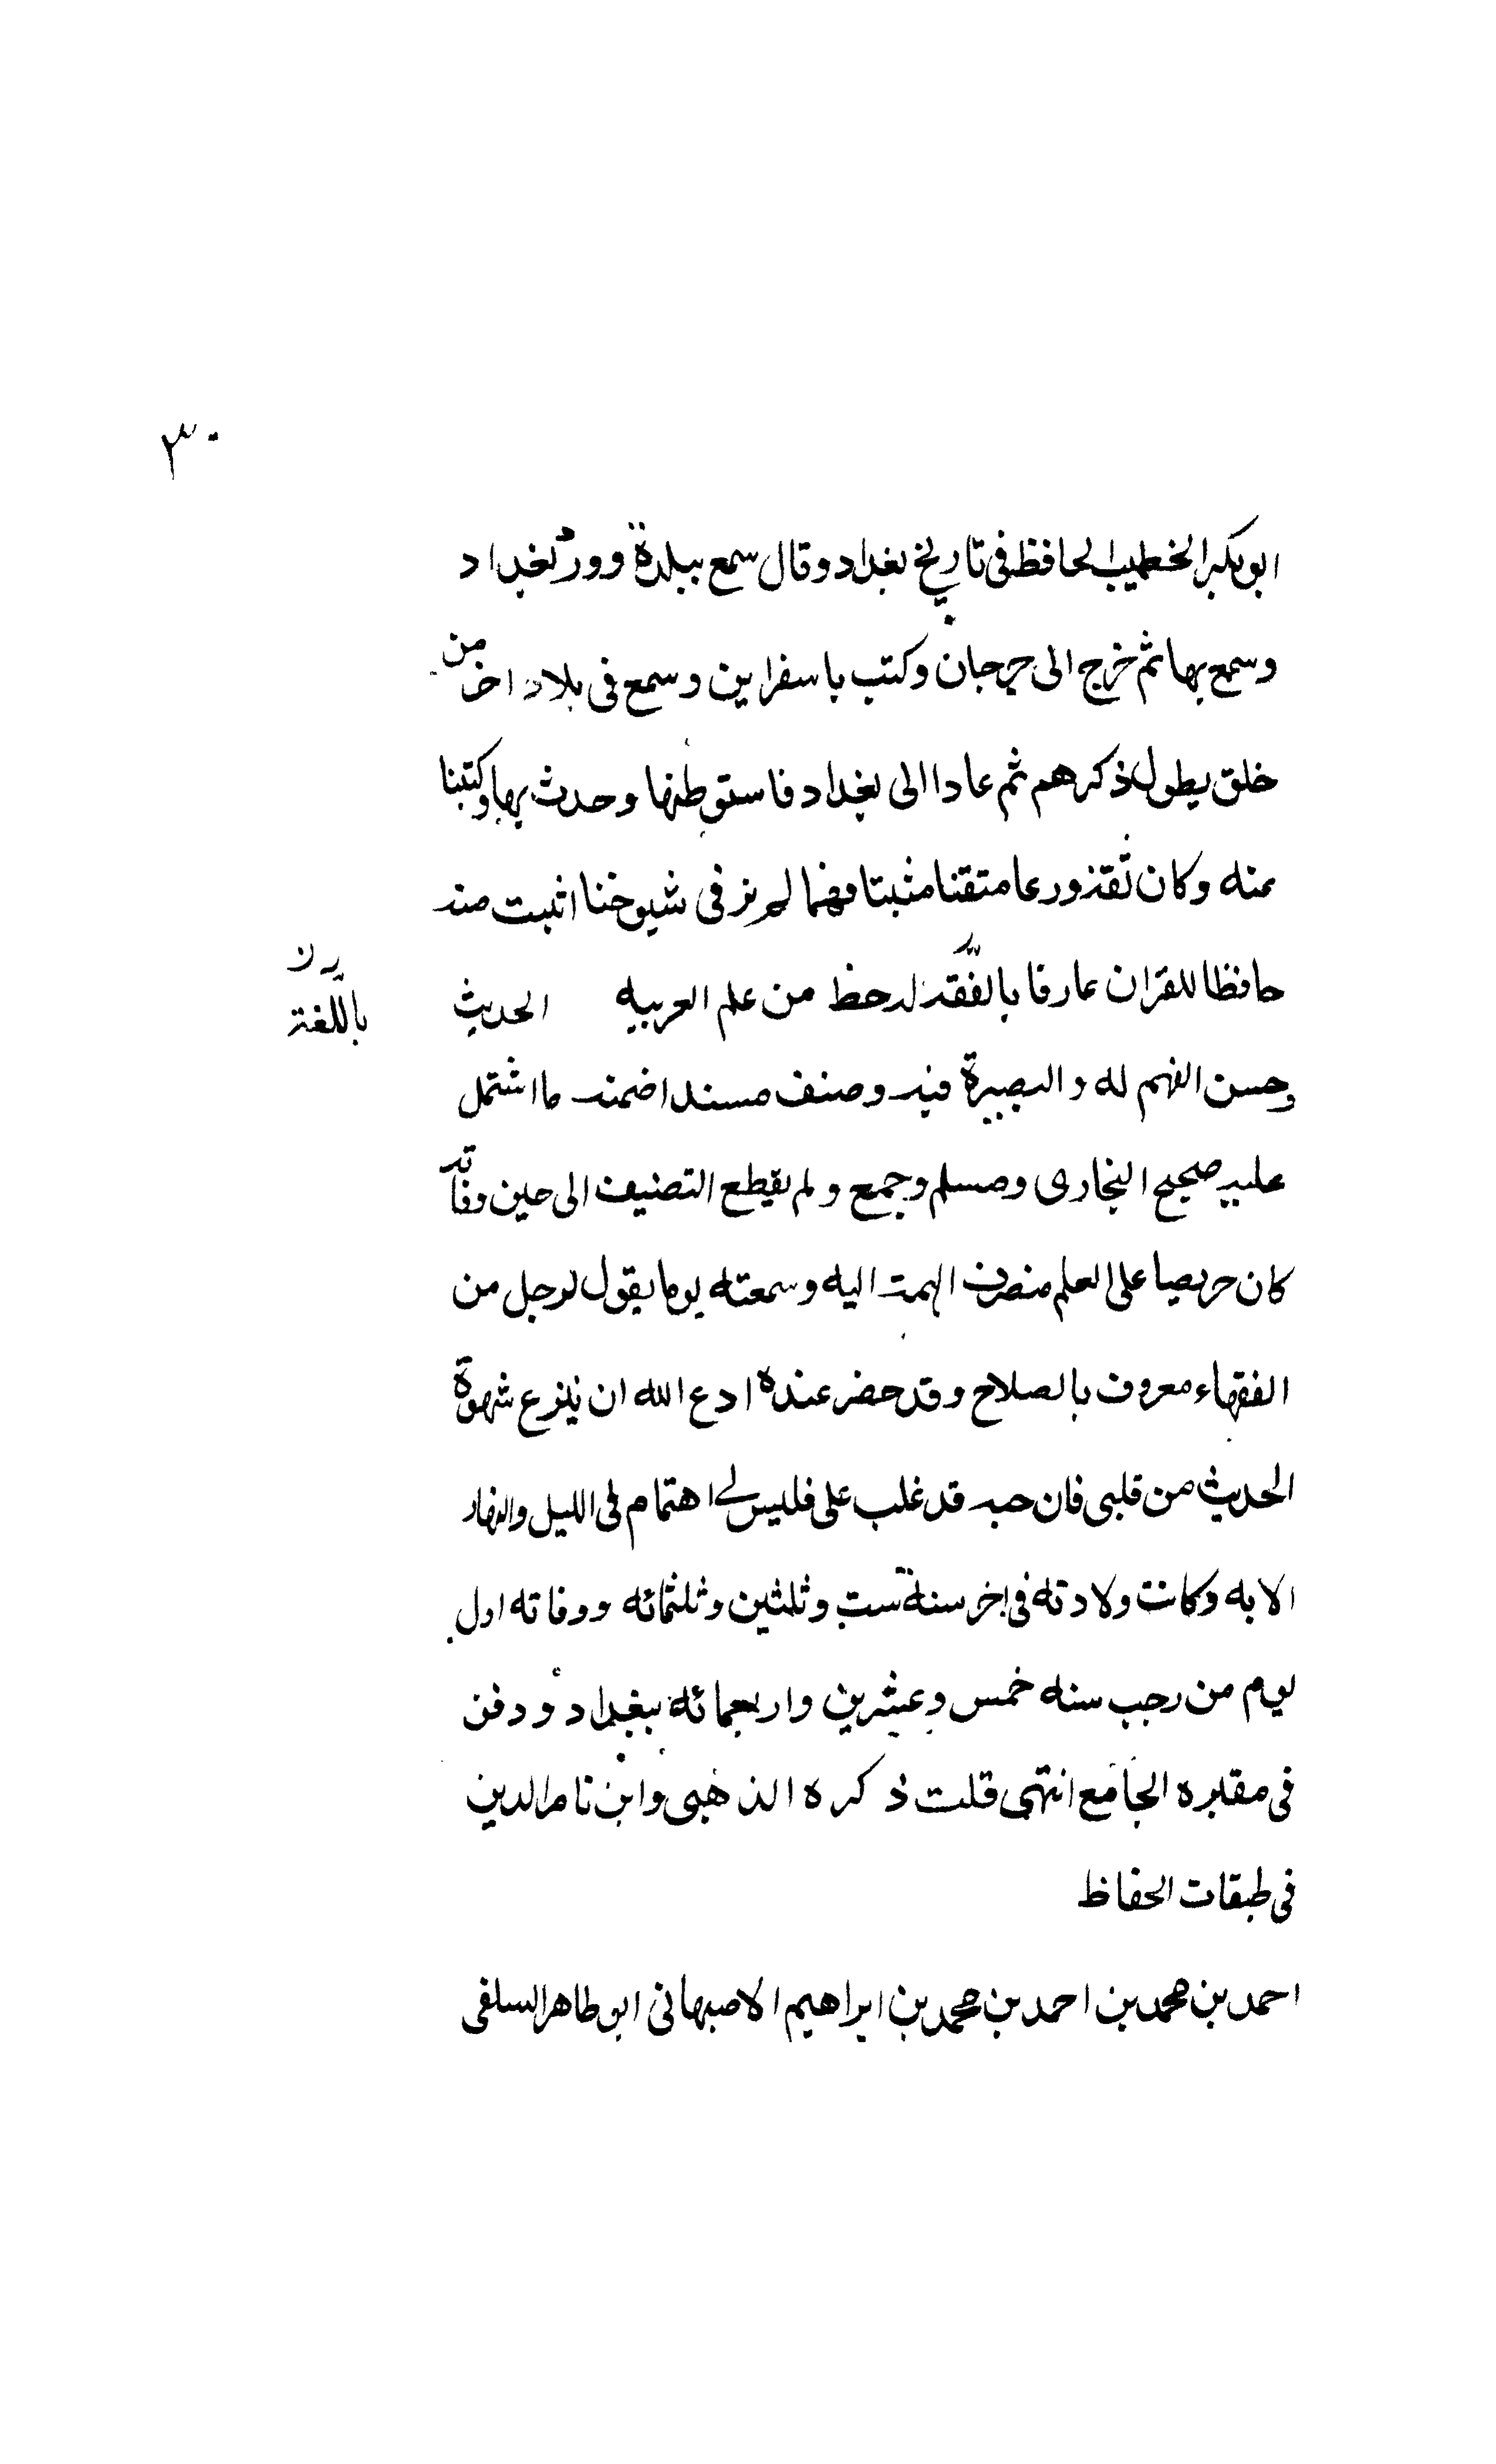 ٣٠
ابو بكر الخطيب الحافظ فى تاريخ بغداد وقال سمع ببلدة وورد بغداد
وسمع بها ثم خرج الى جرجان وكتب باسفراين وسمع فى بلاد اخر من
خلق يطول ذكرهم ثم عادا الى بغداد فاستوطنها وحدث بها وكتبنا
عنه وكان ثقة ورعا متقنا مثبتا فهما لم نر فى شيوخنا اثبت منه
حافظا للقران عارفا بالفقه له حظ من علم العربيه الحديث
باللغة
وحسن الفهم له والبصيرة فيه وصنف مسندا ضمنه ما اشتمل
عليه صحيح البخارى ومسلم وجمع ولم يقطع التصنيف الى حين وفاته
كان حريصا على العلم منصرف الهمة اليه وسمعته يوما يقول لرجل من
الفقهاء معروف بالصلاح وقد حضر عنده ادع الله ان ينزع شهوة
الحديث من قلبى فان حبه قد غلب على فليس لى اهتمام فى الليل والنهار
الا به وكانت ولادته فى اخر سنة ست وثلثين وثلثمائه ووفاته اول
يوم من رجب سنه خمس وعشرين واربعمائه ببغداد ودفن
فى مقبره الجامع انتهى قلت ذكره الذهبى وابن ناصر الدين
فى طبقات الحفاظ
احمد بن محمد بن احمد بن محمد بن ابراهيم الاصبهانى ابو طاهر السلفى